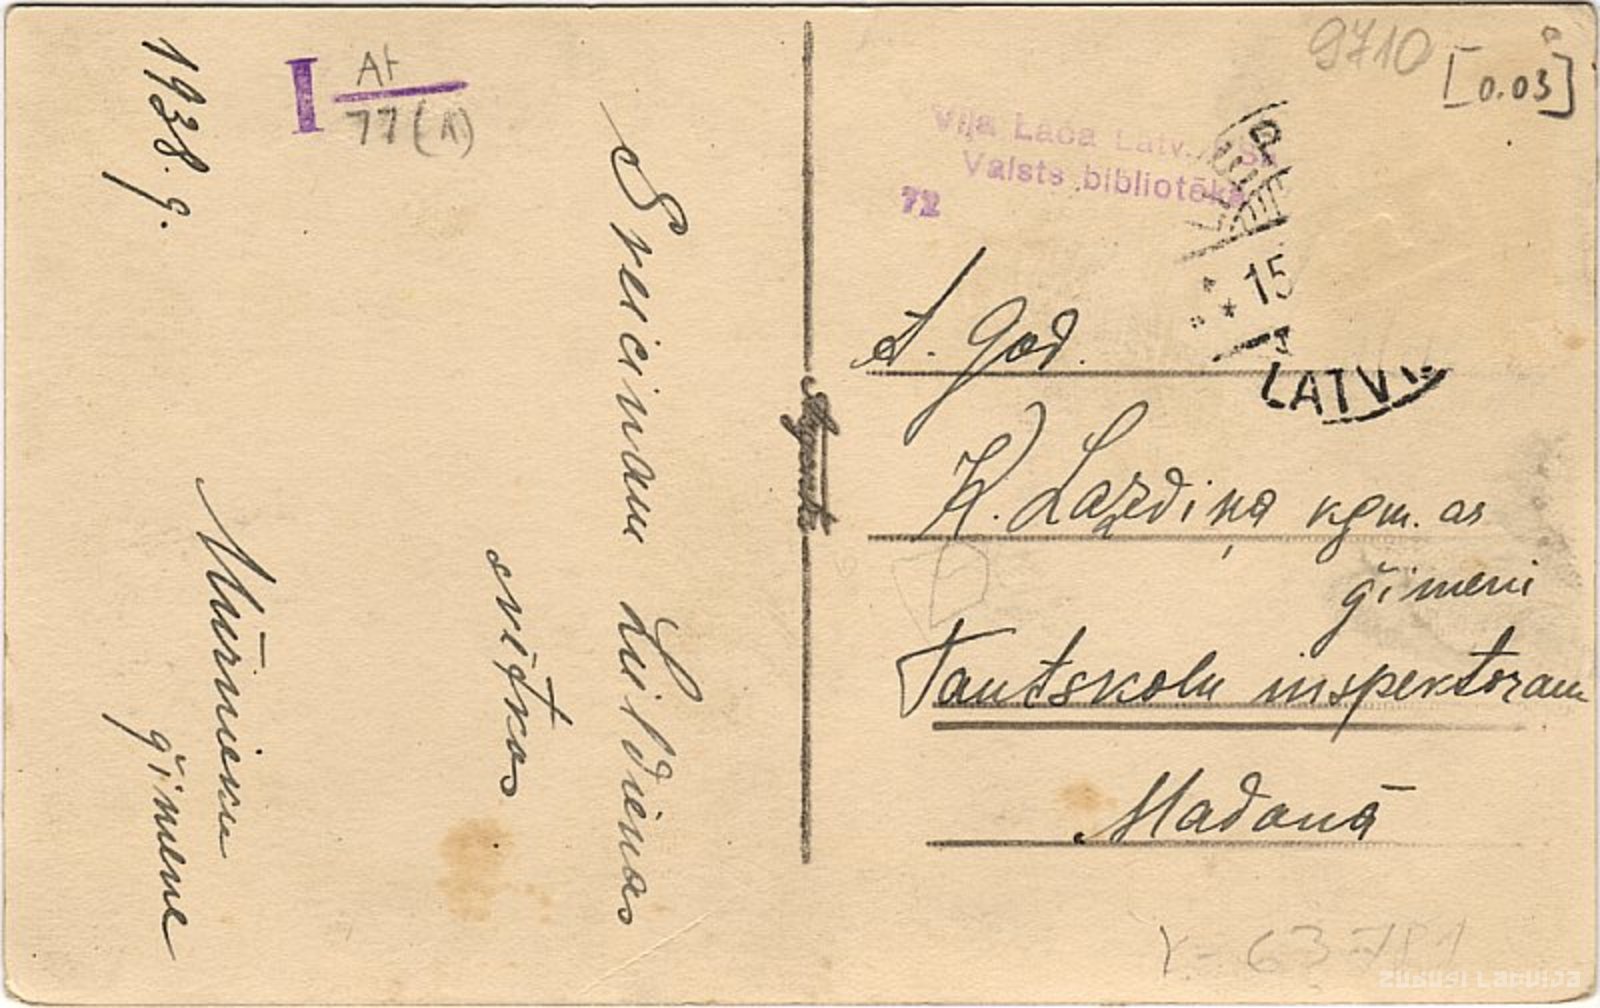 1938. g.
I At
77 (A)
Sveicinam Lieldienas
svētkos
Mūrnieku
ģimene
9710
[0.03]
Viļa Lāča Latv. PSR
Valsts bibliotēka
72
15
LATV
A. God.
K. Lazdiņa kgm. as
ģimeni
Tautskolu inspektoram
Madonā
Y-63781
ZUDUSI LATVIJA